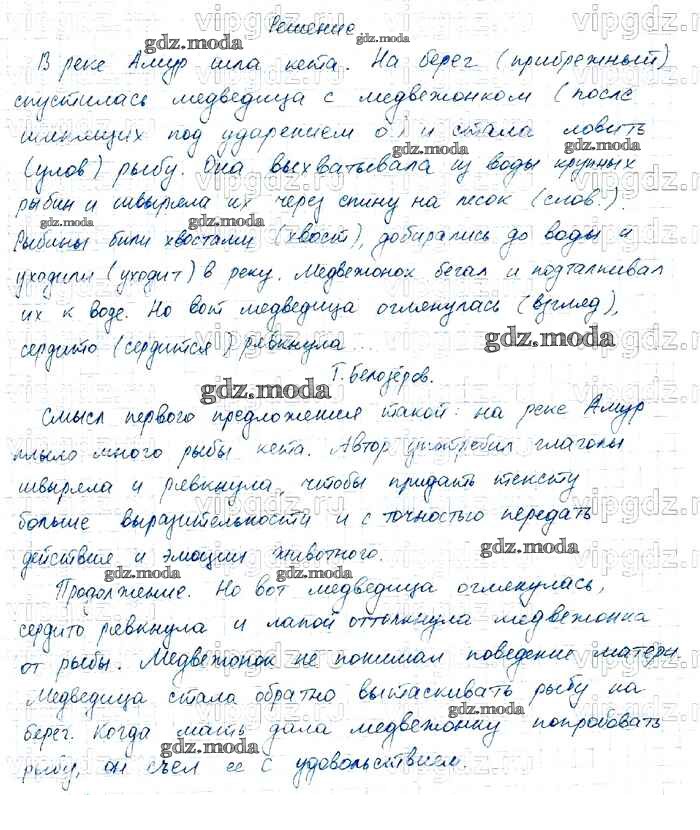 Решение
В реке Амур шла кета. На берег (прибрежный)
спустилась медведица с медвежонком (после
шипящих под ударением о) и стала ловить
(улов) рыбу. Она выхватывала из воды крупных
рыбин и швыряла их через спину на песок (слов.).
Рыбины били хвостами (хвост), добирались до воды и
уходили (уходит) в реку. Медвежонок бегал и подталкивал
их к воде. Но вот медведица оглянулась (взгляд),
сердито (сердится) рявкнула...
Т. Белозёров.
Смысл первого предложения такой: на реке Амур
плыло много рыбы кета. Автор употребил глаголы
швыряла и рявкнула, чтобы придать тексту
больше выразительности и с точностью передать
действие и эмоции животного.
Продолжение. Но вот медведица оглянулась,
сердито рявкнула и лапой оттолкнула медвежонка
от рыбы. Медвежонок не понимал поведение матери.
Медведица стала обратно вытаскивать рыбу на
берег. Когда мать дала медвежонку попробовать
рыбу, он съел ее с удовольствием.
gdz.moda
gdz.moda
gdz.moda
gdz.moda
gdz.moda
gdz.moda
gdz.moda
gdz.moda
gdz.moda
gdz.moda
gdz.moda
gdz.moda